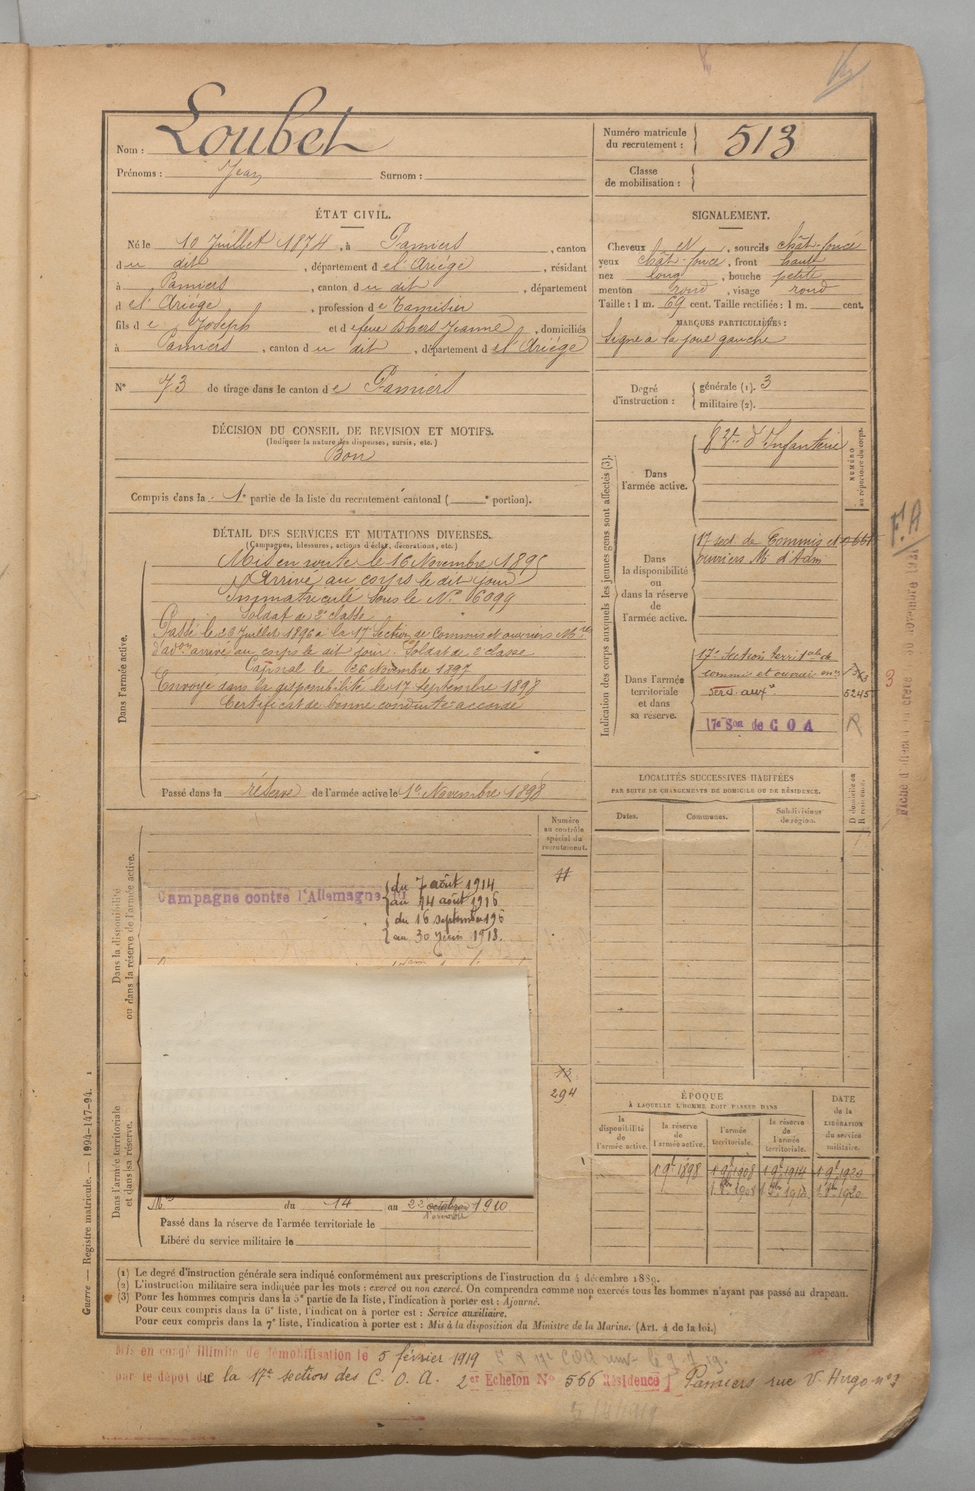 Nom : Loubet
Prénoms : Jean Surnom :
Numéro matricule du recrutement : 513
Classe de mobilisation :
ÉTAT CIVIL.
Né le 10 Juillet 1874, à Pamiers, canton
du dit, département de l'Ariége, résidant
à Pamiers, canton du dit, département
de l'Ariége, profession de Tamisier
fils de Joseph et de feue Jeanne, domiciliés
à Pamiers, canton du dit, département de l'Ariége
N° 73 de tirage dans le canton de Pamiers
SIGNALEMENT.
Cheveux , sourcils chât-foncé
yeux chât-foncé, front haut
nez long, bouche petite
menton rond, visage rond
Taille : 1 m. 69 cent. Taille rectifiée : 1 m. cent.
MARQUES PARTICULIÈRES :
Signe à la joue gauche
Degré d'instruction : générale (1). 3
militaire (2).
DÉCISION DU CONSEIL DE REVISION ET MOTIFS.
(Indiquer la nature des dispenses, sursis, etc.)
Bon
Compris dans la 1e partie de la liste du recrutement cantonal ( e portion).
DÉTAIL DES SERVICES ET MUTATIONS DIVERSES.
(Campagnes, blessures, actions d'éclat, décorations, etc.)
Dans l'armée active.
Mis en route le 16 Novembre 1895
Arrivé au corps le dit jour
Immatriculé sous le N° 6099
Soldat de 2e classe
Passé le 20 Juillet 1896 à la 17 Section de Commis et ouvriers Mre
d'adon arrivé au corps le dit jour. Soldat de 2 classe
Caporal le 26 Novembre 1897
Envoyé dans la disponibilité le 17 Septembre 1898
Certificat de bonne conduite accordé
Passé dans la réserve de l'armée active le 1er Novembre 1898
Indication des corps auxquels les jeunes gens sont affectés (3).
NUMÉRO au répertoire du corps.
Dans l'armée active.
d'Infanterie
Dans la disponibilité ou dans la réserve de l'armée active.
17 sect de Commis et
ouvriers M d'Adm
Dans l'armée territoriale et dans sa réserve.
17e Section territale de
commis et ouvriers
serv auxre
5245
17e Son de C O A
R
F. A
3
LOCALITÉS SUCCESSIVES HABITÉES
PAR SUITE DE CHANGEMENTS DE DOMICILE OU DE RÉSIDENCE.
Dates. Communes. Subdivisions de région. D domicile ou R résidence.
Dans la disponibilité ou dans la réserve de l'armée active.
Numéro au contrôle spécial du recrutement.
Campagne contre l'Allemagne
du 7 août 1914
au 14 août 1916
du 16 septembre 196
au 30 Juin 1918.
Dans l'armée territoriale et dans sa réserve.
294
du 14 au 23 octobre 1910
Passé dans la réserve de l'armée territoriale le
Libéré du service militaire le
ÉPOQUE
À LAQUELLE L'HOMME DOIT PASSER DANS
la disponibilité de l'armée active. la réserve de l'armée active. l'armée territoriale. la réserve de l'armée territoriale.
DATE de la LIBÉRATION du service militaire.
1 9bre 1898 1 9bre 1908 1 9bre 1914 1 9bre 1920
(1) Le degré d'instruction générale sera indiqué conformément aux prescriptions de l'instruction du 4 décembre 1889.
(2) L'instruction militaire sera indiquée par les mots : exercé ou non exercé. On comprendra comme non exercés tous les hommes n'ayant pas passé au drapeau.
(3) Pour les hommes compris dans la 5e partie de la liste, l'indication à porter est : Ajourné.
Pour ceux compris dans la 6e liste, l'indication à porter est : Service auxiliaire.
Pour ceux compris dans la 7e liste, l'indication à porter est : Mis à la disposition du Ministre de la Marine. (Art. 4 de la loi.)
Guerre — Registre matricule. — 1994-147-94.
Mis en congé illimité de démobilisation le 5 février 1919
par le dépôt de la 17e sections des C. O. A. 2er Echelon N° 566 Résidence Pamiers rue V. Hugo n° 3